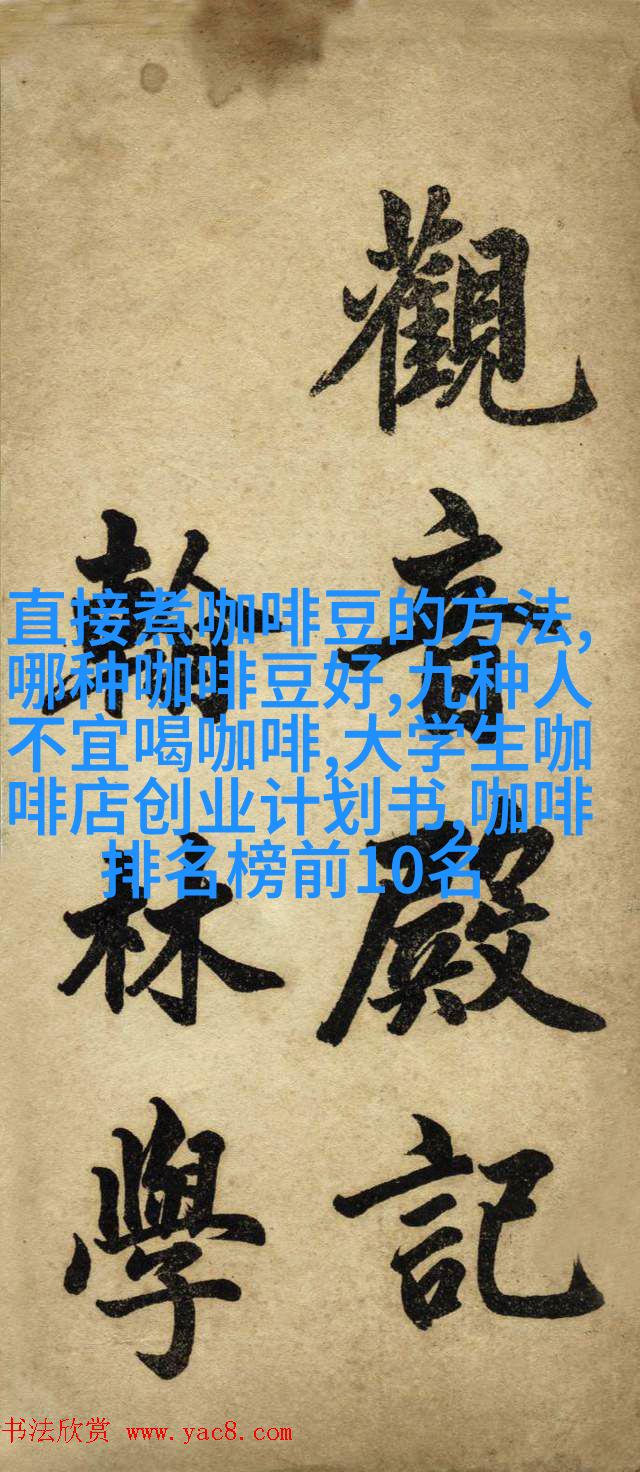 觀音殿記
翰林學
直接煮咖啡豆的方法,
哪种咖啡豆好,九种人
不宜喝咖啡,大学生咖
啡店创业计划书,咖啡
排名榜前10名
书法欣赏 www.yac8.com